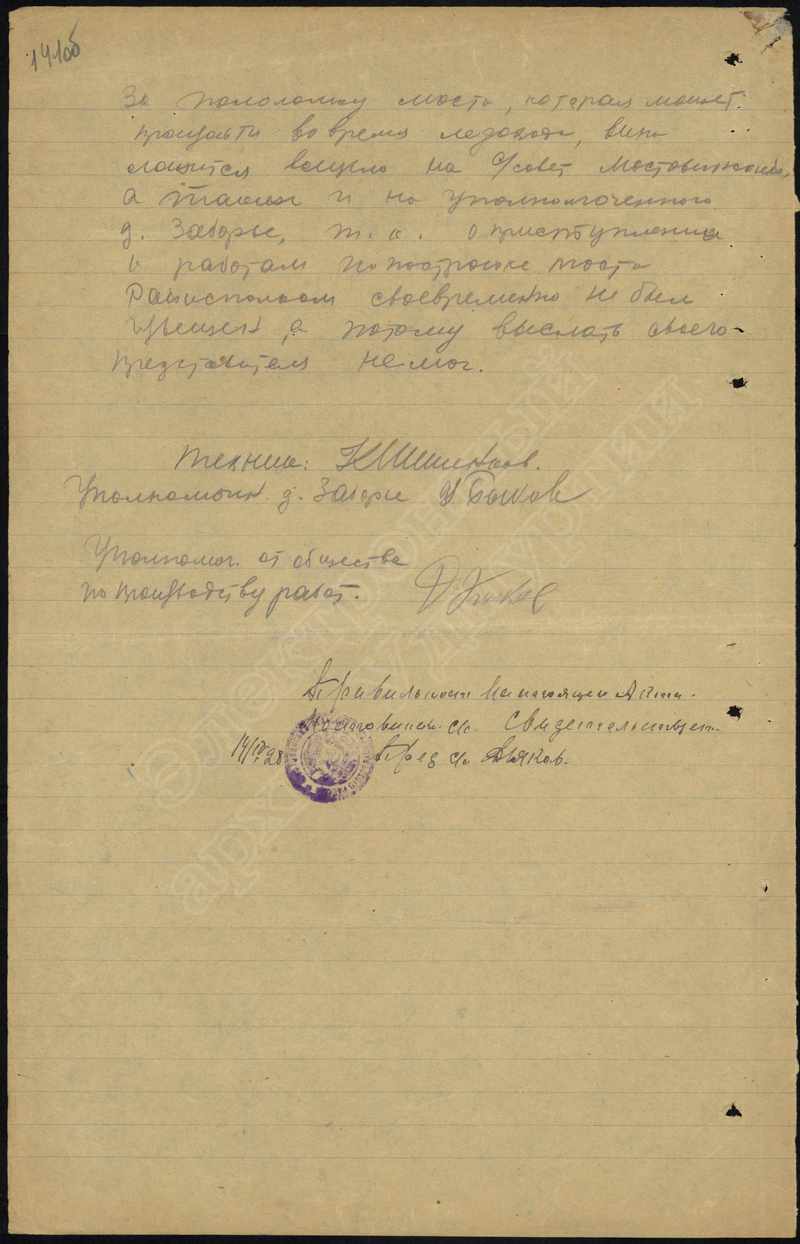 141об
За поломку моста, которая может
произойти во время ледохода, вина
ложится всецело на с/совет
а также и на уполномоченного
д. Заборье, т.к. о приступлении
к работам по постройке моста
Райисполком своевременно не был
извещен, а потому выслать своего
представителя не мог.
Техник:
Уполномочен. д. Заборье Быков
Уполномоч. от общества
по производству работ.
Правильность настоящего Акта
с/с. свидетельствует.
14/IV 28 Пред с/с Дьяков.
Электронный
архив Удмуртии